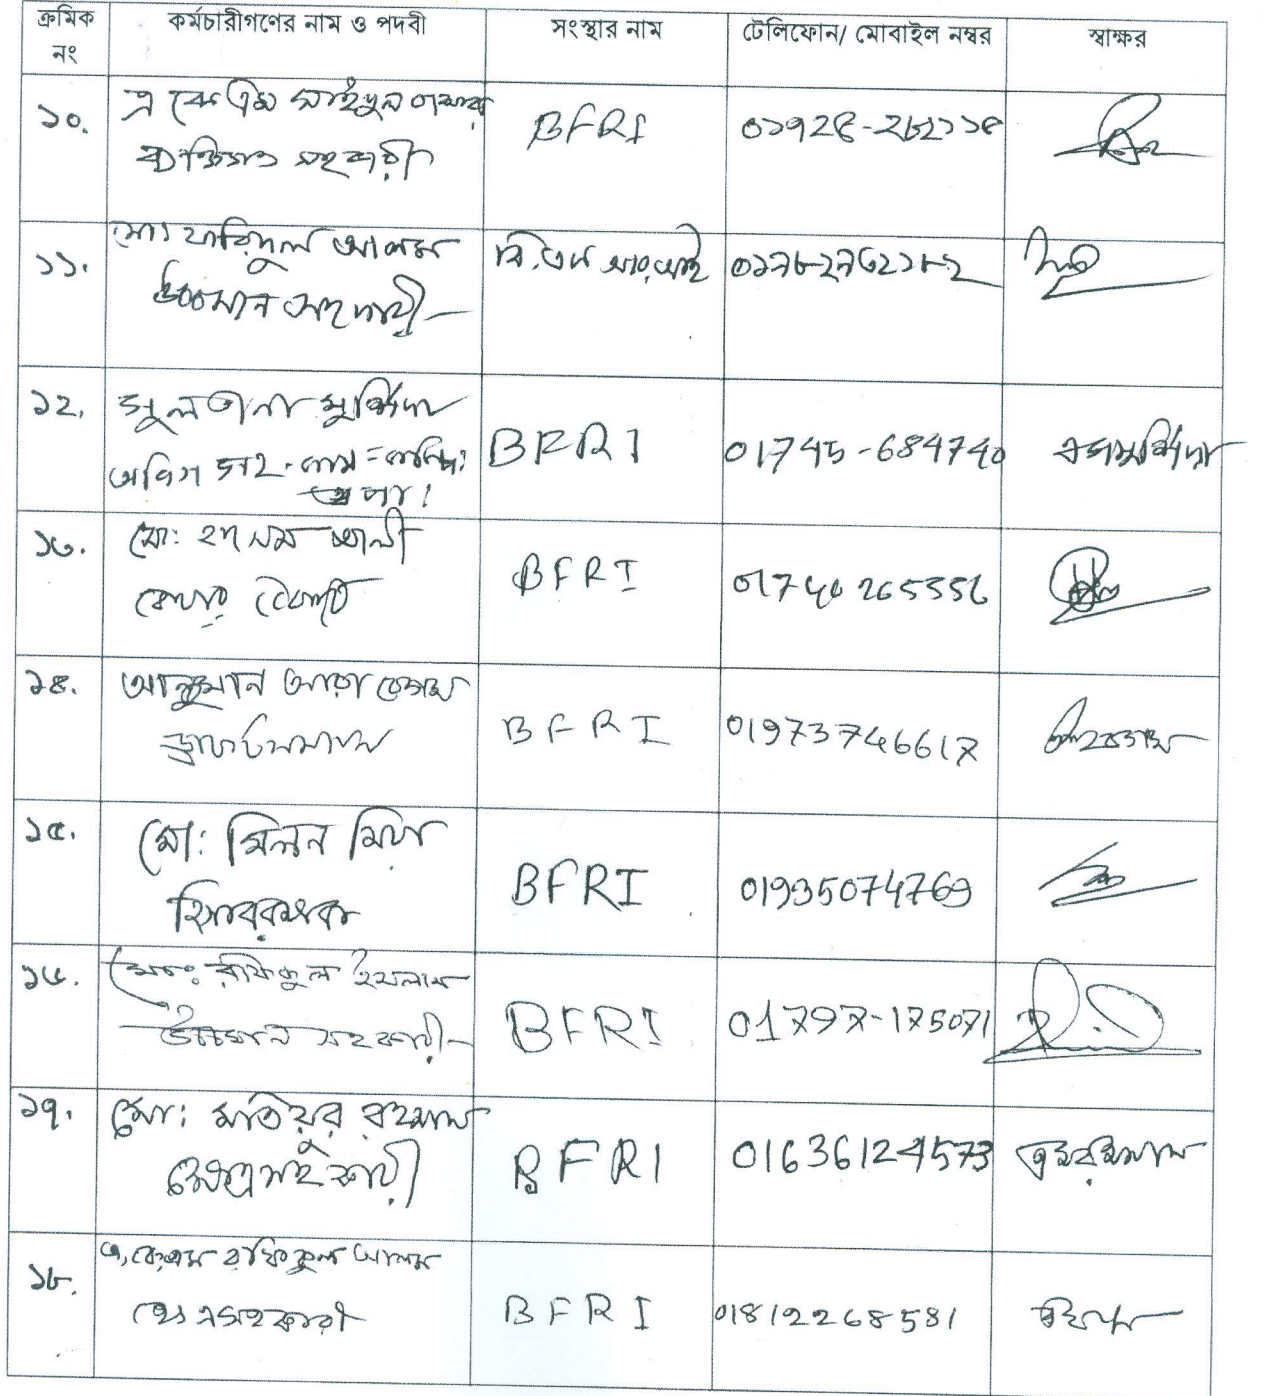 ক্রমিক নং
কর্মচারীগণের নাম ও পদবী
সংস্থার নাম
টেলিফোন/ মোবাইল নম্বর
স্বাক্ষর
১০.
এ কে এম সাইদুল
ব্যক্তিগত সহকারী
BFRI
১১.
মোঃ ফরিদুল আলম
উচ্চমান সহকারী
বি.এফ আর.আই
১২.
সুলতানা মুর্শিদা
অফিস সহ-
BFRI
01745-684740
১৩.
মো: আলী
BFRI
01740265356
১৪.
আনজুমান আরা বেগম
ড্রাফটসম্যান
BFRI
01973746617
১৫.
মো: মিলন মিয়া
হিসাবরক্ষক
BFRI
01935074769
১৬.
মোঃ রফিকুল ইসলাম
উচ্চমান সহকারী
BFRI
01797-175071
১৭.
মো: মতিয়ুর রহমান
ক্ষেত্রসহকারী
BFRI
01636124573
১৮.
এ,কে,এম রফিকুল আলম
ক্ষেত্রসহকারী
BFRI
01812268581